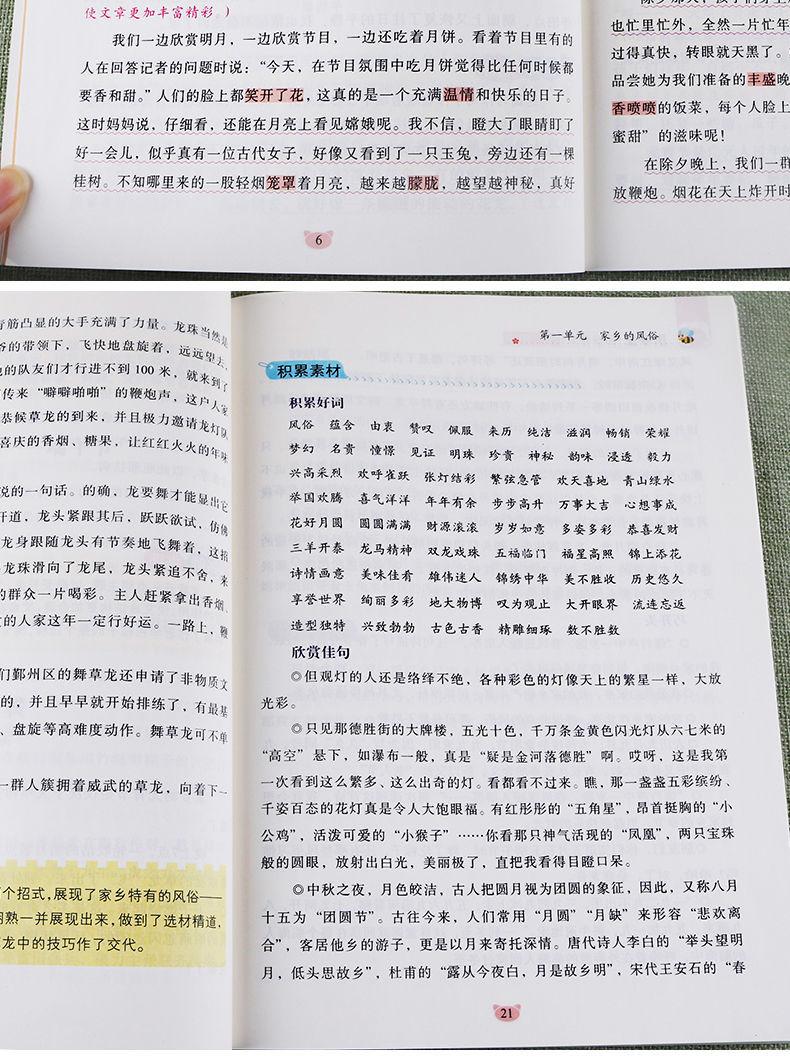 使文章更加丰富精彩。)
我们一边欣赏明月，一边欣赏节目，一边还吃着月饼。看着节目里有的
人在回答记者的问题时说：“今天，在节日氛围中吃月饼觉得比任何时候都
要香和甜。”人们的脸上都笑开了花，这真的是一个充满温情和快乐的日子。
这时妈妈说，仔细看，还能在月亮上看见嫦娥呢。我不信，瞪大了眼睛盯了
好一会儿，似乎真有一位古代女子，好像又看到了一只玉兔，旁边还有一棵
桂树。不知哪里来的一股轻烟笼罩着月亮，越来越朦胧，越望越神秘，真好
6
也忙里忙外，全然一片忙年
过得真快，转眼就天黑了。
品尝她为我们准备的丰盛晚
香喷喷的饭菜，每个人脸上
蜜甜”的滋味呢！
在除夕晚上，我们一群
放鞭炮。烟花在天上炸开时
青筋凸显的大手充满了力量。龙珠当然是
爷的带领下，飞快地盘旋着，远远望去，
的队友们才行进不到100米，就来到了
传来“噼噼啪啪”的鞭炮声，这户人家
恭候草龙的到来，并且极力邀请龙灯队
喜庆的香烟、糖果，让红红火火的年味
说的一句话。的确，龙要舞才能显出它
开道，龙头紧跟其后，跃跃欲试，仿佛
龙身跟随龙头有节奏地飞舞着，这招
龙珠滑向了龙尾，龙头紧追不舍，来
的群众一片喝彩。主人赶紧拿出香烟、
的人家这年一定行好运。一路上，鞭
们鄞州区的舞草龙还申请了非物质文
的，并且早早就开始排练了，有最基
、盘旋等高难度动作。舞草龙可不单
一群人簇拥着威武的草龙，向着下一
个招式，展现了家乡特有的风俗——
娴熟一并展现出来，做到了选材精道，
龙中的技巧作了交代。
第一单元 家乡的风俗
积累素材
积累好词
风俗 蕴含 由衷 赞叹 佩服 来历 纯洁 滋润 畅销 荣耀
梦幻 名贵 憧憬 见证 明珠 珍贵 神秘 韵味 浸透 毅力
兴高采烈 欢呼雀跃 张灯结彩 繁弦急管 欢天喜地 青山绿水
举国欢腾 喜气洋洋 年年有余 步步高升 万事大吉 心想事成
花好月圆 圆圆满满 财源滚滚 岁岁如意 多姿多彩 恭喜发财
三羊开泰 龙马精神 双龙戏珠 五福临门 福星高照 锦上添花
诗情画意 美味佳肴 雄伟迷人 锦绣中华 美不胜收 历史悠久
享誉世界 绚丽多彩 地大物博 叹为观止 大开眼界 流连忘返
造型独特 兴致勃勃 古色古香 精雕细琢 数不胜数
欣赏佳句
◎但观灯的人还是络绎不绝，各种彩色的灯像天上的繁星一样，大放
光彩。
◎只见那德胜街的大牌楼，五光十色，千万条金黄色闪光灯从六七米的
“高空”悬下，如瀑布一般，真是“疑是金河落德胜”啊。哎呀，这是我第
一次看到这么繁多、这么出奇的灯。看都看不过来。瞧，那一盏盏五彩缤纷、
千姿百态的花灯真是令人大饱眼福。有红彤彤的“五角星”，昂首挺胸的“小
公鸡”，活泼可爱的“小猴子”……你看那只神气活现的“凤凰”，两只宝珠
般的圆眼，放射出白光，美丽极了，直把我看得目瞪口呆。
◎中秋之夜，月色皎洁，古人把圆月视为团圆的象征，因此，又称八月
十五为“团圆节”。古往今来，人们常用“月圆”“月缺”来形容“悲欢离
合”，客居他乡的游子，更是以月来寄托深情。唐代诗人李白的“举头望明
月，低头思故乡”，杜甫的“露从今夜白，月是故乡明”，宋代王安石的“春
21